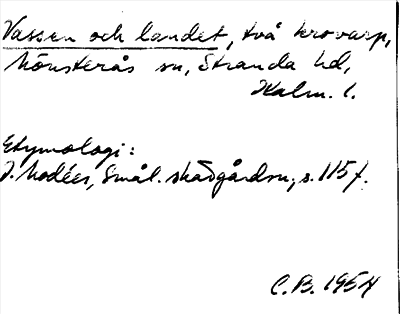 Vassen och landet, två krovarp,
Mönsterås sn, Stranda hd,
Kalm. l.
Etymologi:
J. Modéer, Smål. skärgårdsn., s. 115 f.
C.B. 1954